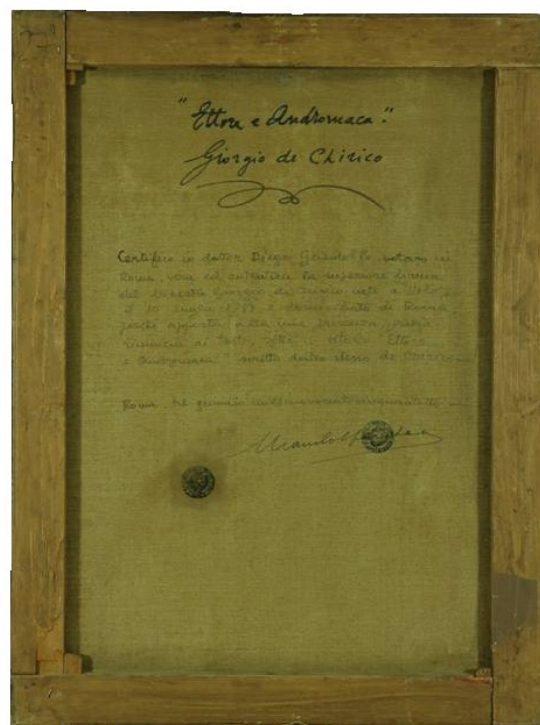 "Ettore e Andromaca."
Giorgio de Chirico
Certifico io dottor Diego Gandolfo, notaro in
Roma, vera ed autentica la superiore firma
del Maestro Giorgio de Chirico nato a Volo
il 10 luglio 1888 e domiciliato in Roma,
perchè apposta alla mia presenza, previa
rinuncia ai testi, sotto il titolo "Ettore
e Andromaca" scritto dallo stesso de Chirico
Roma, gennaio millenovecento